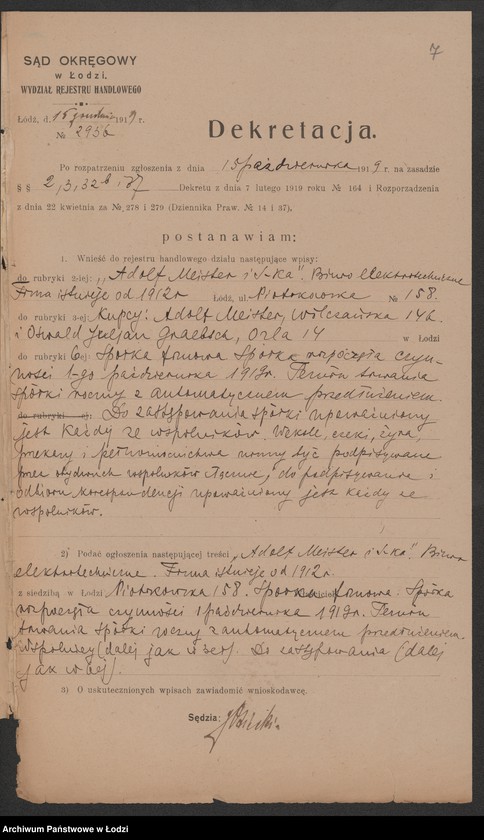 7
SĄD OKRĘGOWY
w Łodzi.
WYDZIAŁ REJESTRU HANDLOWEGO
Łódź, d. 15 grudnia 1919 r.
№ 2956
Dekretacja.
Po rozpatrzeniu zgłoszenia z dnia 15 października 1919 r. na zasadzie
§ § 2, 3, 32 i 37 Dekretu z dnia 7 lutego 1919 roku № 164 i Rozporządzenia
z dnia 22 kwietnia za №. 278 i 279 (Dziennika Praw. № 14 i 37).
postanawiam:
1. Wnieść do rejestru handlowego działu następujące wpisy:
do rubryki 2-iej: „Adolf Meister i S-ka". Biuro elektrotechniczne
Firma istnieje od 1912 r Łódź, ul. Piotrkowska № 158.
do rubryki 3-ej Kupcy: Adolf Meister, Wólczańska 146.
i Oswald Juljan Graebsch, Orla 14 w Łodzi
do rubryki 6ej: Spółka firmowa Spółka rozpoczęła czyn-
ności 1-go października 1919r. Termin trwania
spółki roczny z automatycznem przedłużeniem.
do rubryki ej: Do zastępowania spółki upoważniony
jest każdy ze wspólników. Weksle, czeki, żyra,
przekazy i pełnomocnictwa winny być podpisywane
przez obydwóch wspólników łącznie, do podpisywania i
odbioru korespondencji upoważniony jest każdy ze
wspólników.
2) Podać ogłoszenia następującej treści „Adolf Meister i S-ka". Biuro
elektrotechniczne. Firma istnieje od 1912 r.
z siedzibą w Łodzi Piotrkowska 158. Spółka firmowa. Spółka
rozpoczęła czynności 1 października 1919r. Termin
trwania spółki roczny z automatycznem przedłużeniem.
Wspólnicy (dalej jak w 3ej). Do zastępowania (dalej
jak w 6ej).
3) O uskutecznionych wpisach zawiadomić wnioskodawcę.
Sędzia:
Archiwum Państwowe w Łodzi